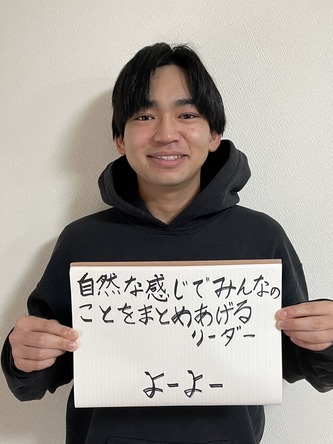 自然な感じでみんなの
ことをまとめあげる
リーダー
よーよー